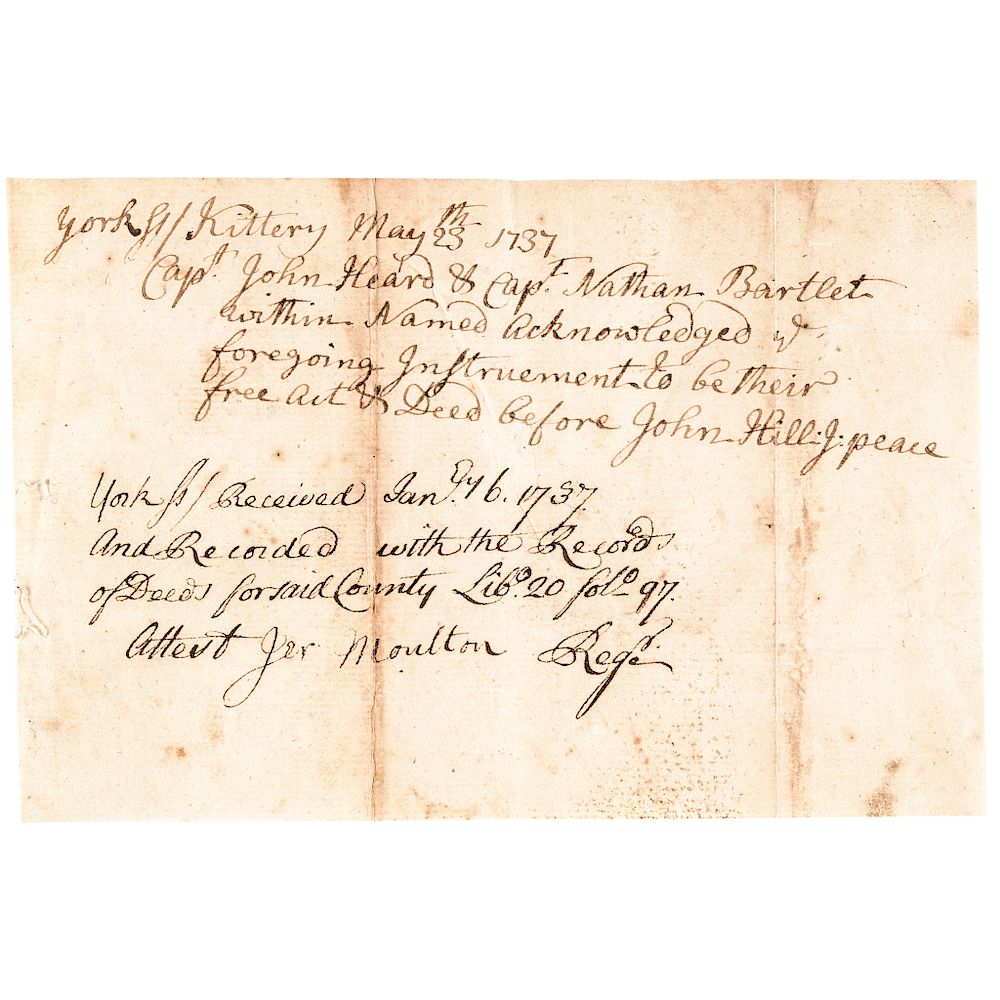 York ss/ Kittery May 23th 1737
Capt. John Heard & Capt. Nathan Bartlet
within Named Acknowledged ye
foregoing Instruement to be their
free Act & Deed before John Hill J: peace
York ss/ Received Janry 6. 1737.
And Recorded with the Records
of Deeds for said County Libo 20 folo 97.
Attest Jer Moulton Regr.